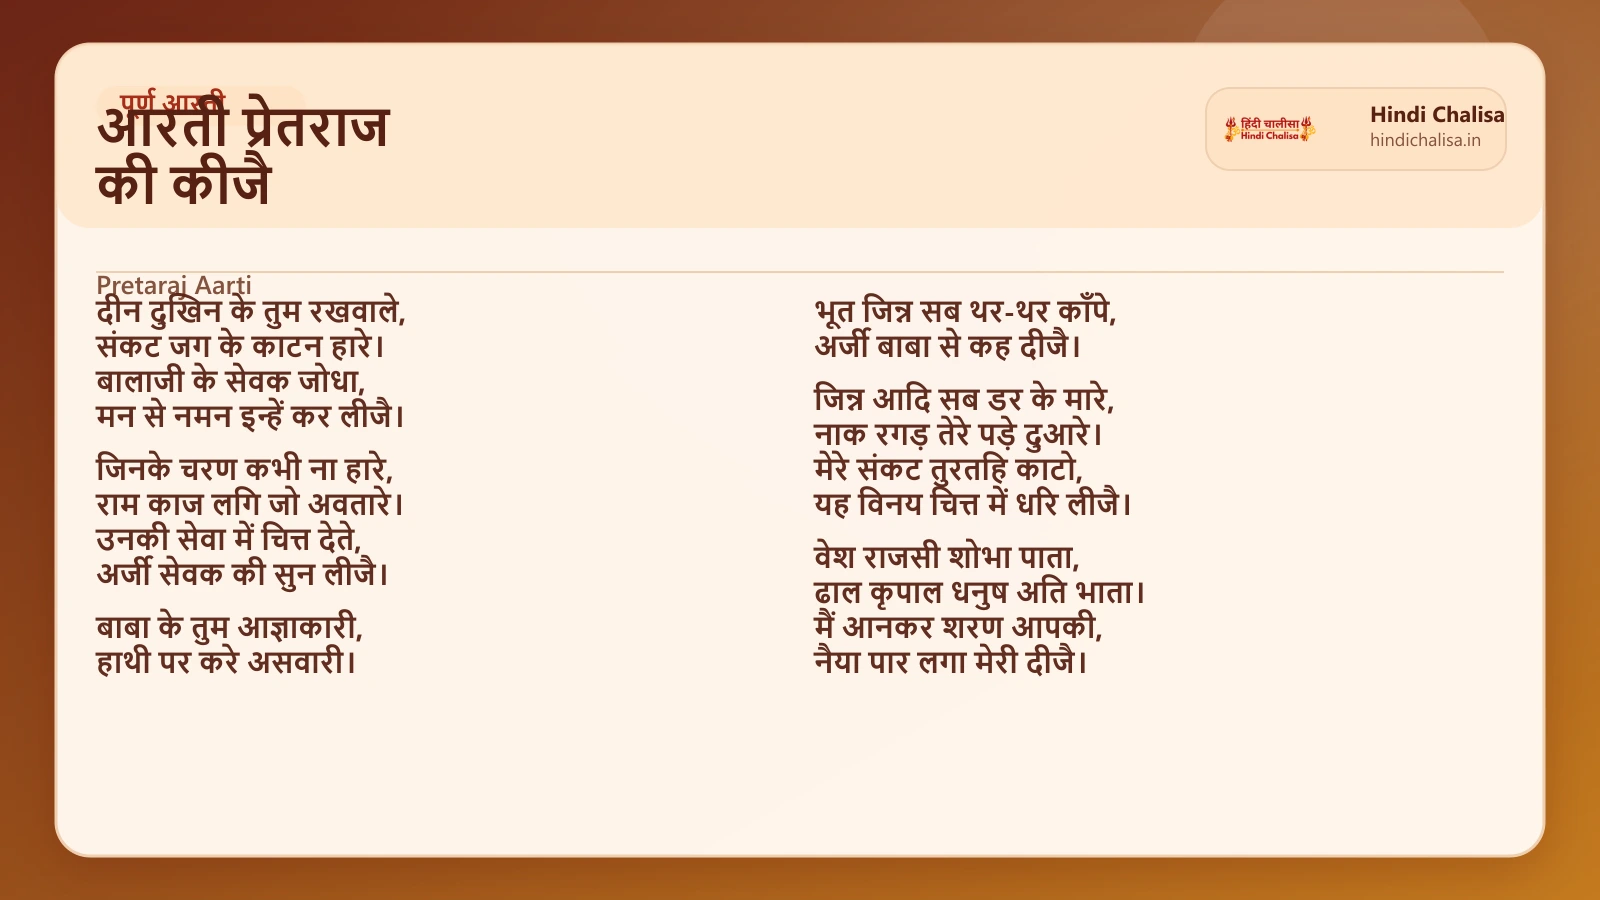 पूर्ण आरती
आरती प्रेतराज
की कीजै
हिंदी चालीसा
Hindi Chalisa
Hindi Chalisa
hindichalisa.in
Pretaraj Aarti
दीन दुखिन के तुम रखवाले,
संकट जग के काटन हारे।
बालाजी के सेवक जोधा,
मन से नमन इन्हें कर लीजै।
जिनके चरण कभी ना हारे,
राम काज लगि जो अवतारे।
उनकी सेवा में चित्त देते,
अर्जी सेवक की सुन लीजै।
बाबा के तुम आज्ञाकारी,
हाथी पर करे असवारी।
भूत जिन्न सब थर-थर काँपे,
अर्जी बाबा से कह दीजै।
जिन्न आदि सब डर के मारे,
नाक रगड़ तेरे पड़े दुआरे।
मेरे संकट तुरतहि काटो,
यह विनय चित्त में धरि लीजै।
वेश राजसी शोभा पाता,
ढाल कृपाल धनुष अति भाता।
मैं आनकर शरण आपकी,
नैया पार लगा मेरी दीजै।